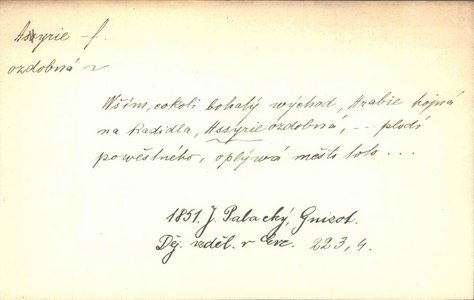 Assyrie -f.
ozdobná ~
Wším, cokoli bohatý východ, Arabie hojná
na kadidla, Assyrie ozdobná, -- plodí
powěstného, oplývá město toto ...
1851. J. Palacký, Guizot.
Děj. vzděl. v Evr. 223, 4.